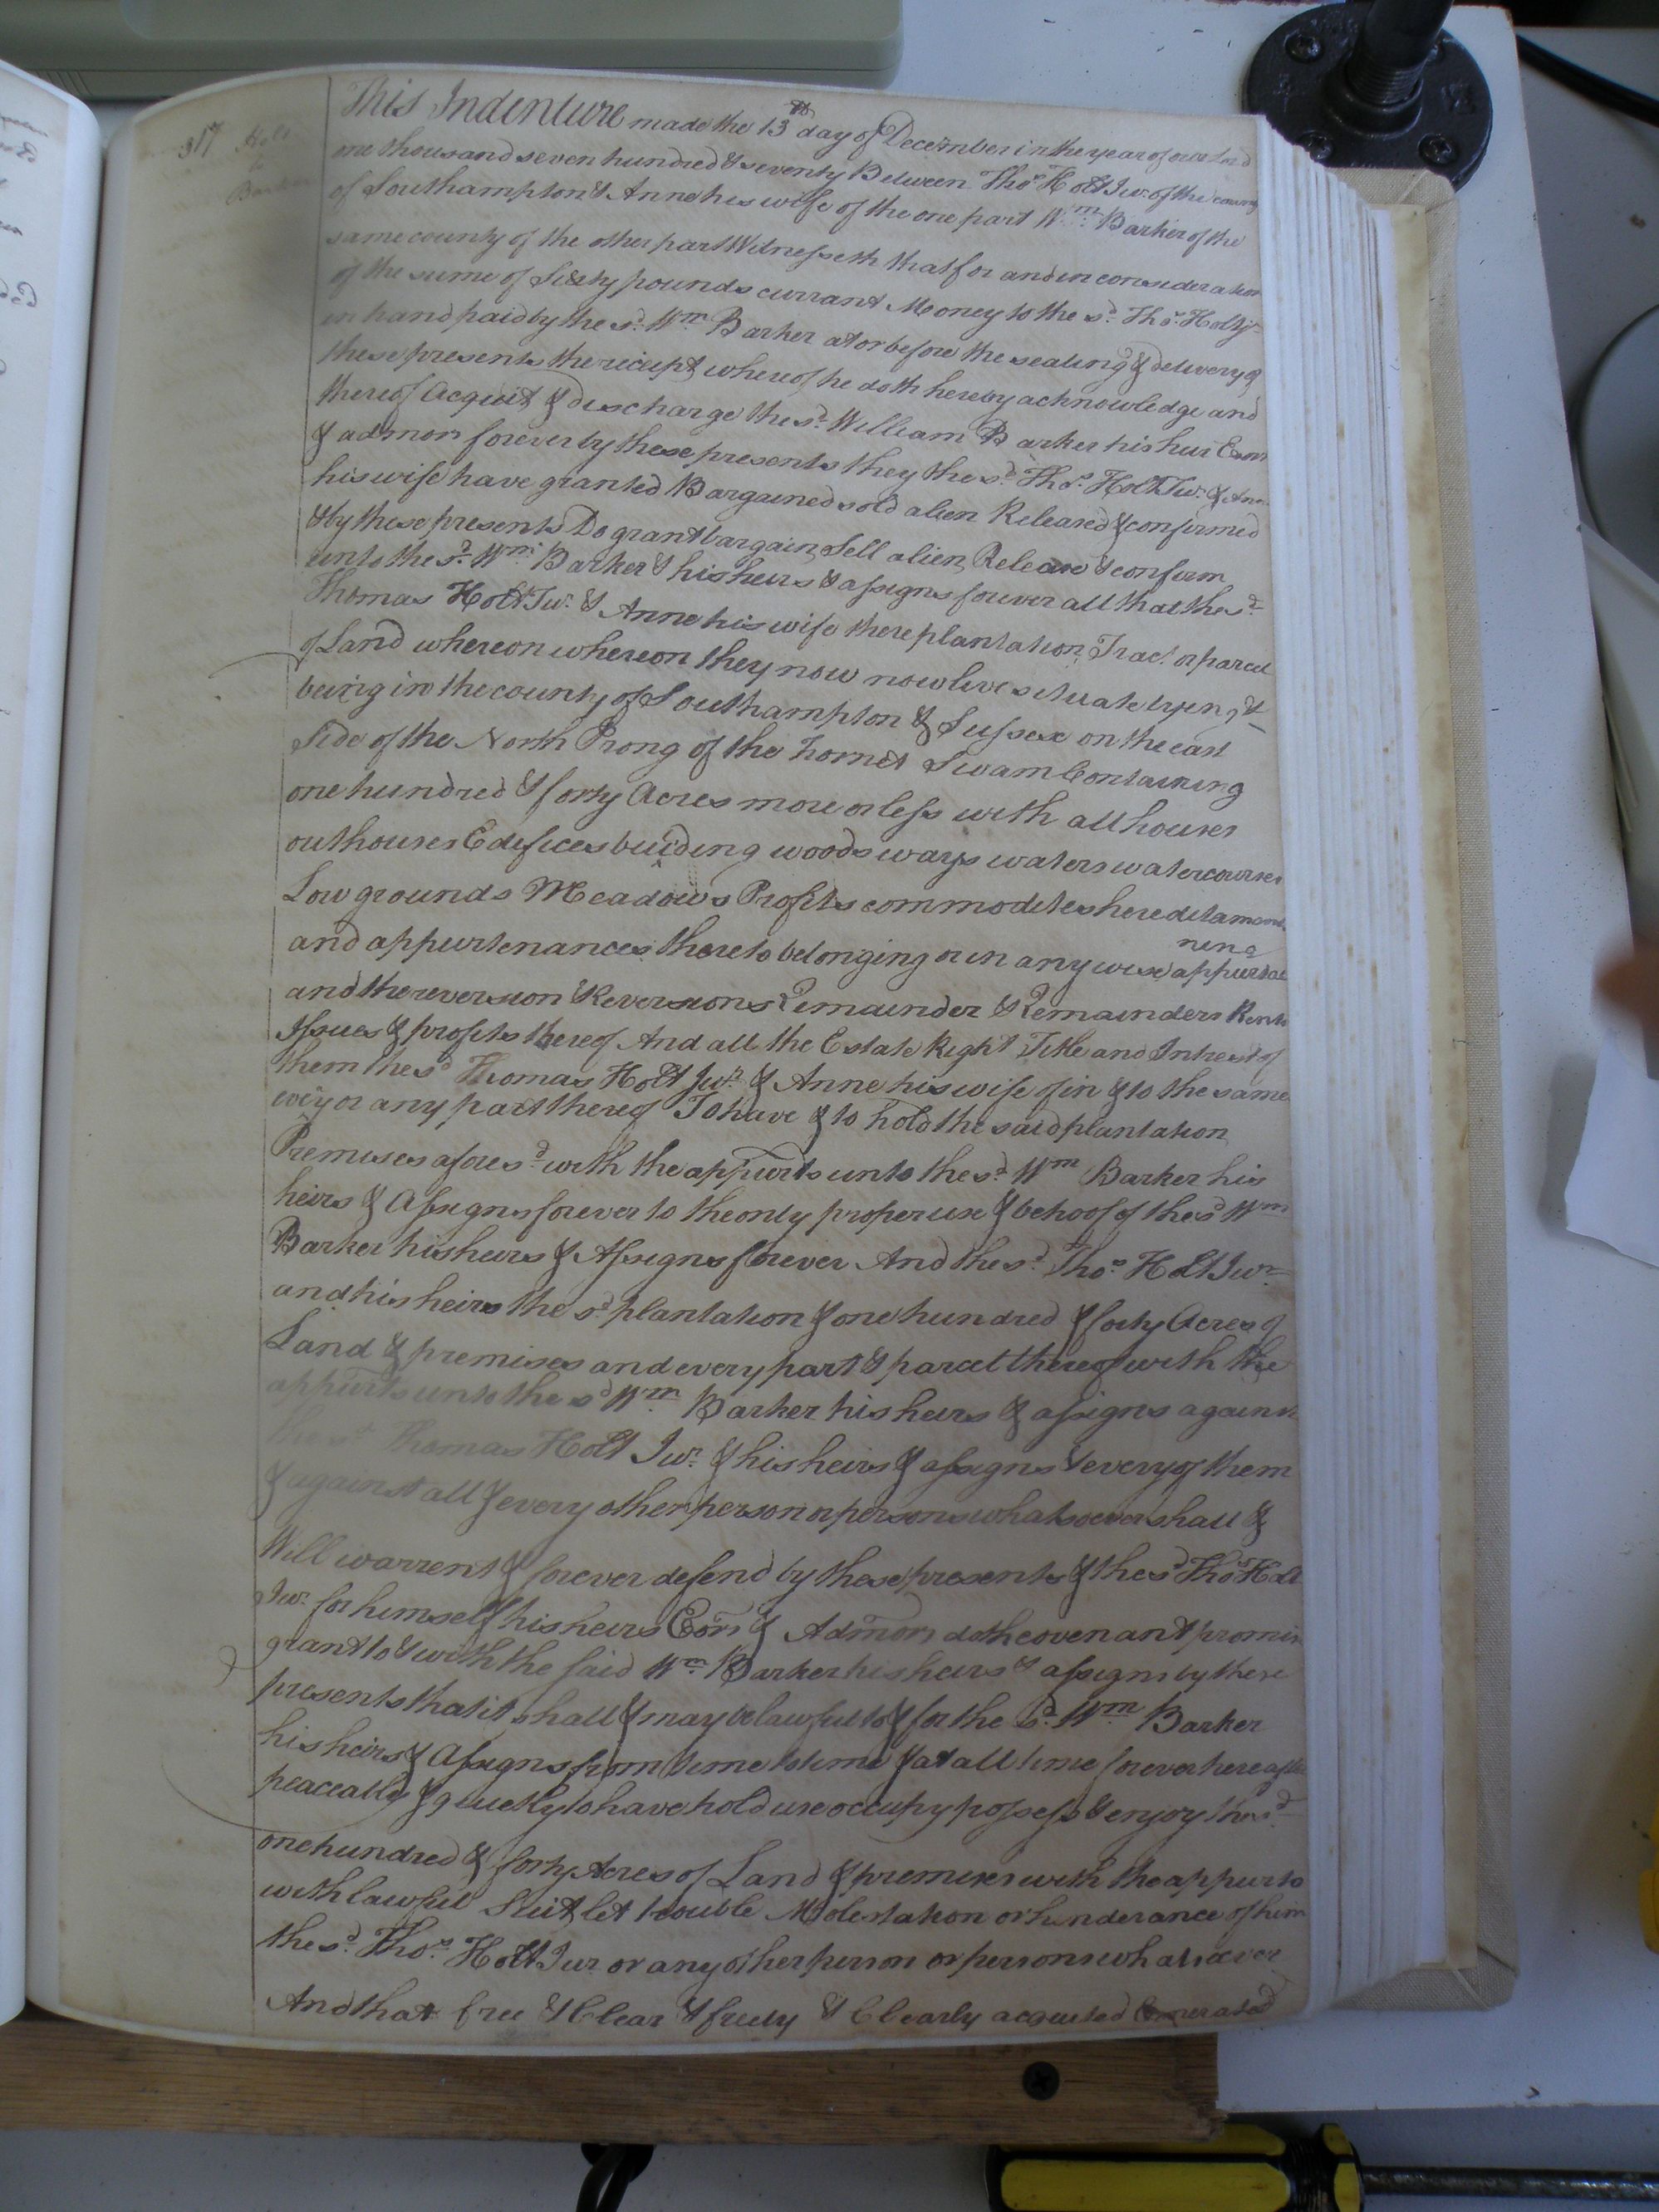 317 Holt
to
Barker
This Indenture made the 13th day of December in the year of our Lord
one thousand seven hundred & seventy Between Thos Holt Jur. of the county
of Southampton & Anne his wife of the one part Wm. Barker of the
same county of the other part Witnesseth that for and in consideration
of the sume of Sixty pounds currant Money to the sd. Thos. Holt Jr
in hand paid by the sd. Wm. Barker at or before the sealing & delivery of
these presents the receipt whereof he doth hereby acknowledge and
thereof Acquit & discharge the sd. William Barker his heirs Exors
& admors forever by these presents they the sd. Thos. Holt Jur. & Anne
his wife have granted Bargained sold alien Released & confirmed
& by these presents Do grant bargain, Sell alien, Release & confirm
unto the sd. Wm. Barker & his heirs & assigns forever all that the sd.
Thomas Holt Jur. & Anne his wife there plantation, Tract or parcel
of Land whereon whereon they now now live situate lying &
being in the county of Southampton & Sussex on the east
Side of the North Prong of the hornet Swam Containing
one hundred & forty Acres more or less with all houses
outhouses Edifices buiding woods ways waters watercourses
Low grounds Meadows Profits commodites hereditaments
and appurtenances thereto belonging or in any wise appurtai
ning
and the reversion & Reversions Remainder & Remainders Rents
Issues & profits thereof And all the Estate Right Title and Intrest of
them the sd Thomas Holt Jur. & Anne his wife of in & to the same
every or any part thereof To have & to hold the said plantation
Premises afores.d with the appurts unto the sd. Wm Barker his
heirs & Assigns forever to the only proper use & behoof of the sd Wm
Barker his heirs & Assigns forever And the sd. Thos. Holt Jur.
and his heirs the sd plantation & one hundred & forty Acres of
Land & premises and every part & parcel thereof with the
appurts unto the sd Wm. Barker his heirs & assigns against
the sd Thomas Holt Jur. & his heirs & assigns & every of them
& against all & every other person or persons whatsoever shall &
Will warrent & forever defend by these presents & the sd Thos Holt
Jur. for himself his heirs Exors & Admors doth covenant promis
grant to & with the said Wm. Barker his heirs & assigns by these
presents that it shall & may be lawful to & for the sd. Wm Barker
his heirs & Assigns from time to time & at all time forever hereafter
peaceably & quietly to have hold use occupy possess & enjoy the sd.
one hundred & forty Acres of Land & premises with the appurts
with lawful Suit let trouble Molestation or hinderance of him
the sd. Thos. Holt Jur or any other person or persons whatsoever
And that free & Clear & freely & Clearly acquited Exonerated